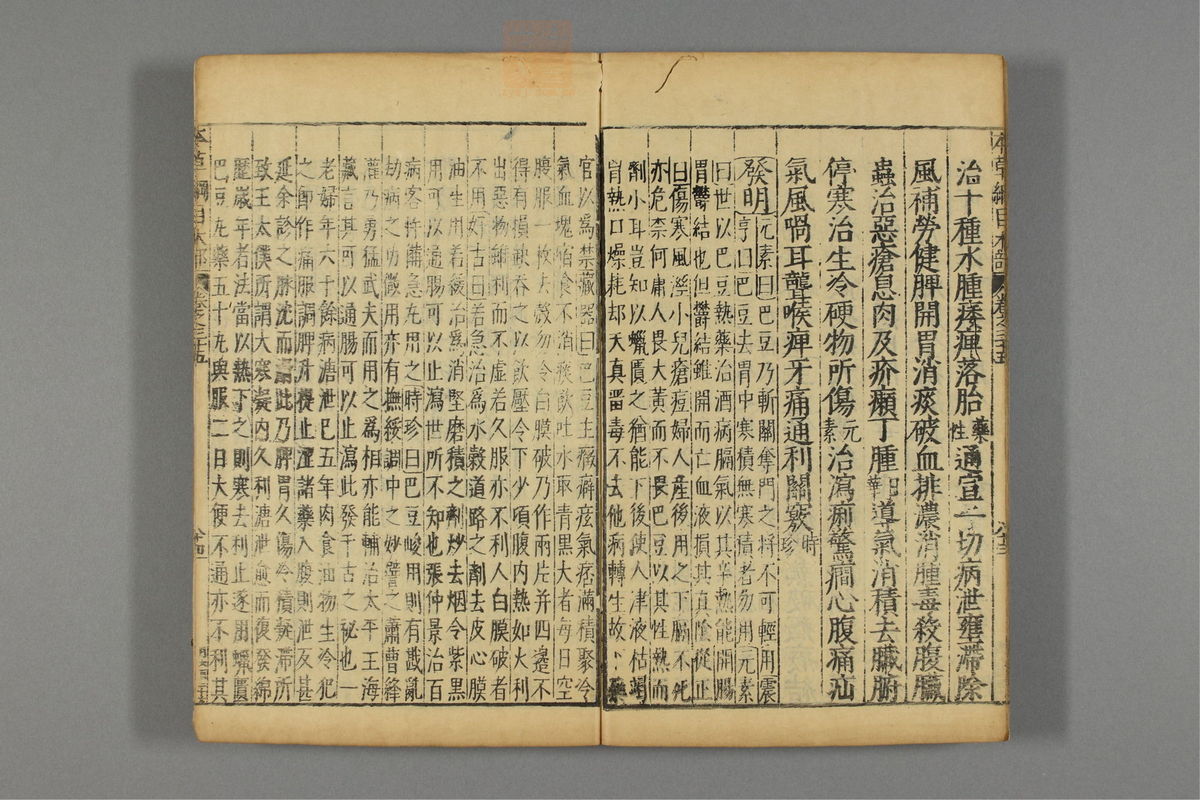 治十種水腫痿痺落胎藥性通宣一切病泄壅滯除
風補勞健脾開胃消痰破血排濃消腫毒殺腹臟
蟲治惡瘡息肉及疥癩丁腫日華導氣消積去臟腑
停寒治生冷硬物所傷元素治瀉痢驚癎心腹痛疝
氣風喎耳聾喉痺牙痛通利關竅時珍
發明元素曰巴豆乃斬關奪門之將不可輕用震
亨曰巴豆去胃中寒積無寒積者勿用元素
曰世以巴豆熱藥治酒病膈氣以其辛熱能開腸
胃鬱結也但鬱結雖開而亡血液損其真陰從正
曰傷寒風溼小兒瘡痘婦人產後用之下膈不死
亦危柰何庸人畏大黃而不畏巴豆以其性熱而
劑小耳豈知以蠟匱之猶能下後使人津液枯竭
胷熱口燥耗却天真留毒不去他病轉生故下藥
官以爲禁藏器曰巴豆主癥癖痃氣痞滿積聚冷
氣血塊宿食不消痰飲吐水取青黑大者每日空
腹服一枚去殼勿令白膜破乃作兩片并四邊不
得有損缺吞之以飲壓令下少頃腹內熱如火利
出惡物雖利而不虛若久服亦不利人白膜破者
不用好古曰若急治爲水穀道路之劑去皮心膜
油生用若緩治爲消堅磨積之劑炒去烟令紫黑
用可以通腸可以止瀉世所不知也張仲景治百
病客忤備急丸用之時珍曰巴豆峻用則有戡亂
劫病之功微用亦有撫綏調中之妙譬之蕭曹絳
灌乃勇猛武夫而用之爲相亦能輔治太平王海
藏言其可以通腸可以止瀉此發千古之秘也一
老婦年六十餘病溏泄巳五年肉食油物生冷犯
之卽作痛服調脾升提止澀諸藥入腹則泄反甚
延余診之脉沈而滑此乃脾胃久傷冷積凝滯所
致王太僕所謂大寒凝內久利溏泄愈而復發綿
歷歲年者法當以熱下之則寒去利止遂用蠟匱
巴豆丸藥五十丸與服二日大便不通亦不利其
本草綱目木部 卷之三十五 八十三
本草綱目木部 卷之三十五 八十四